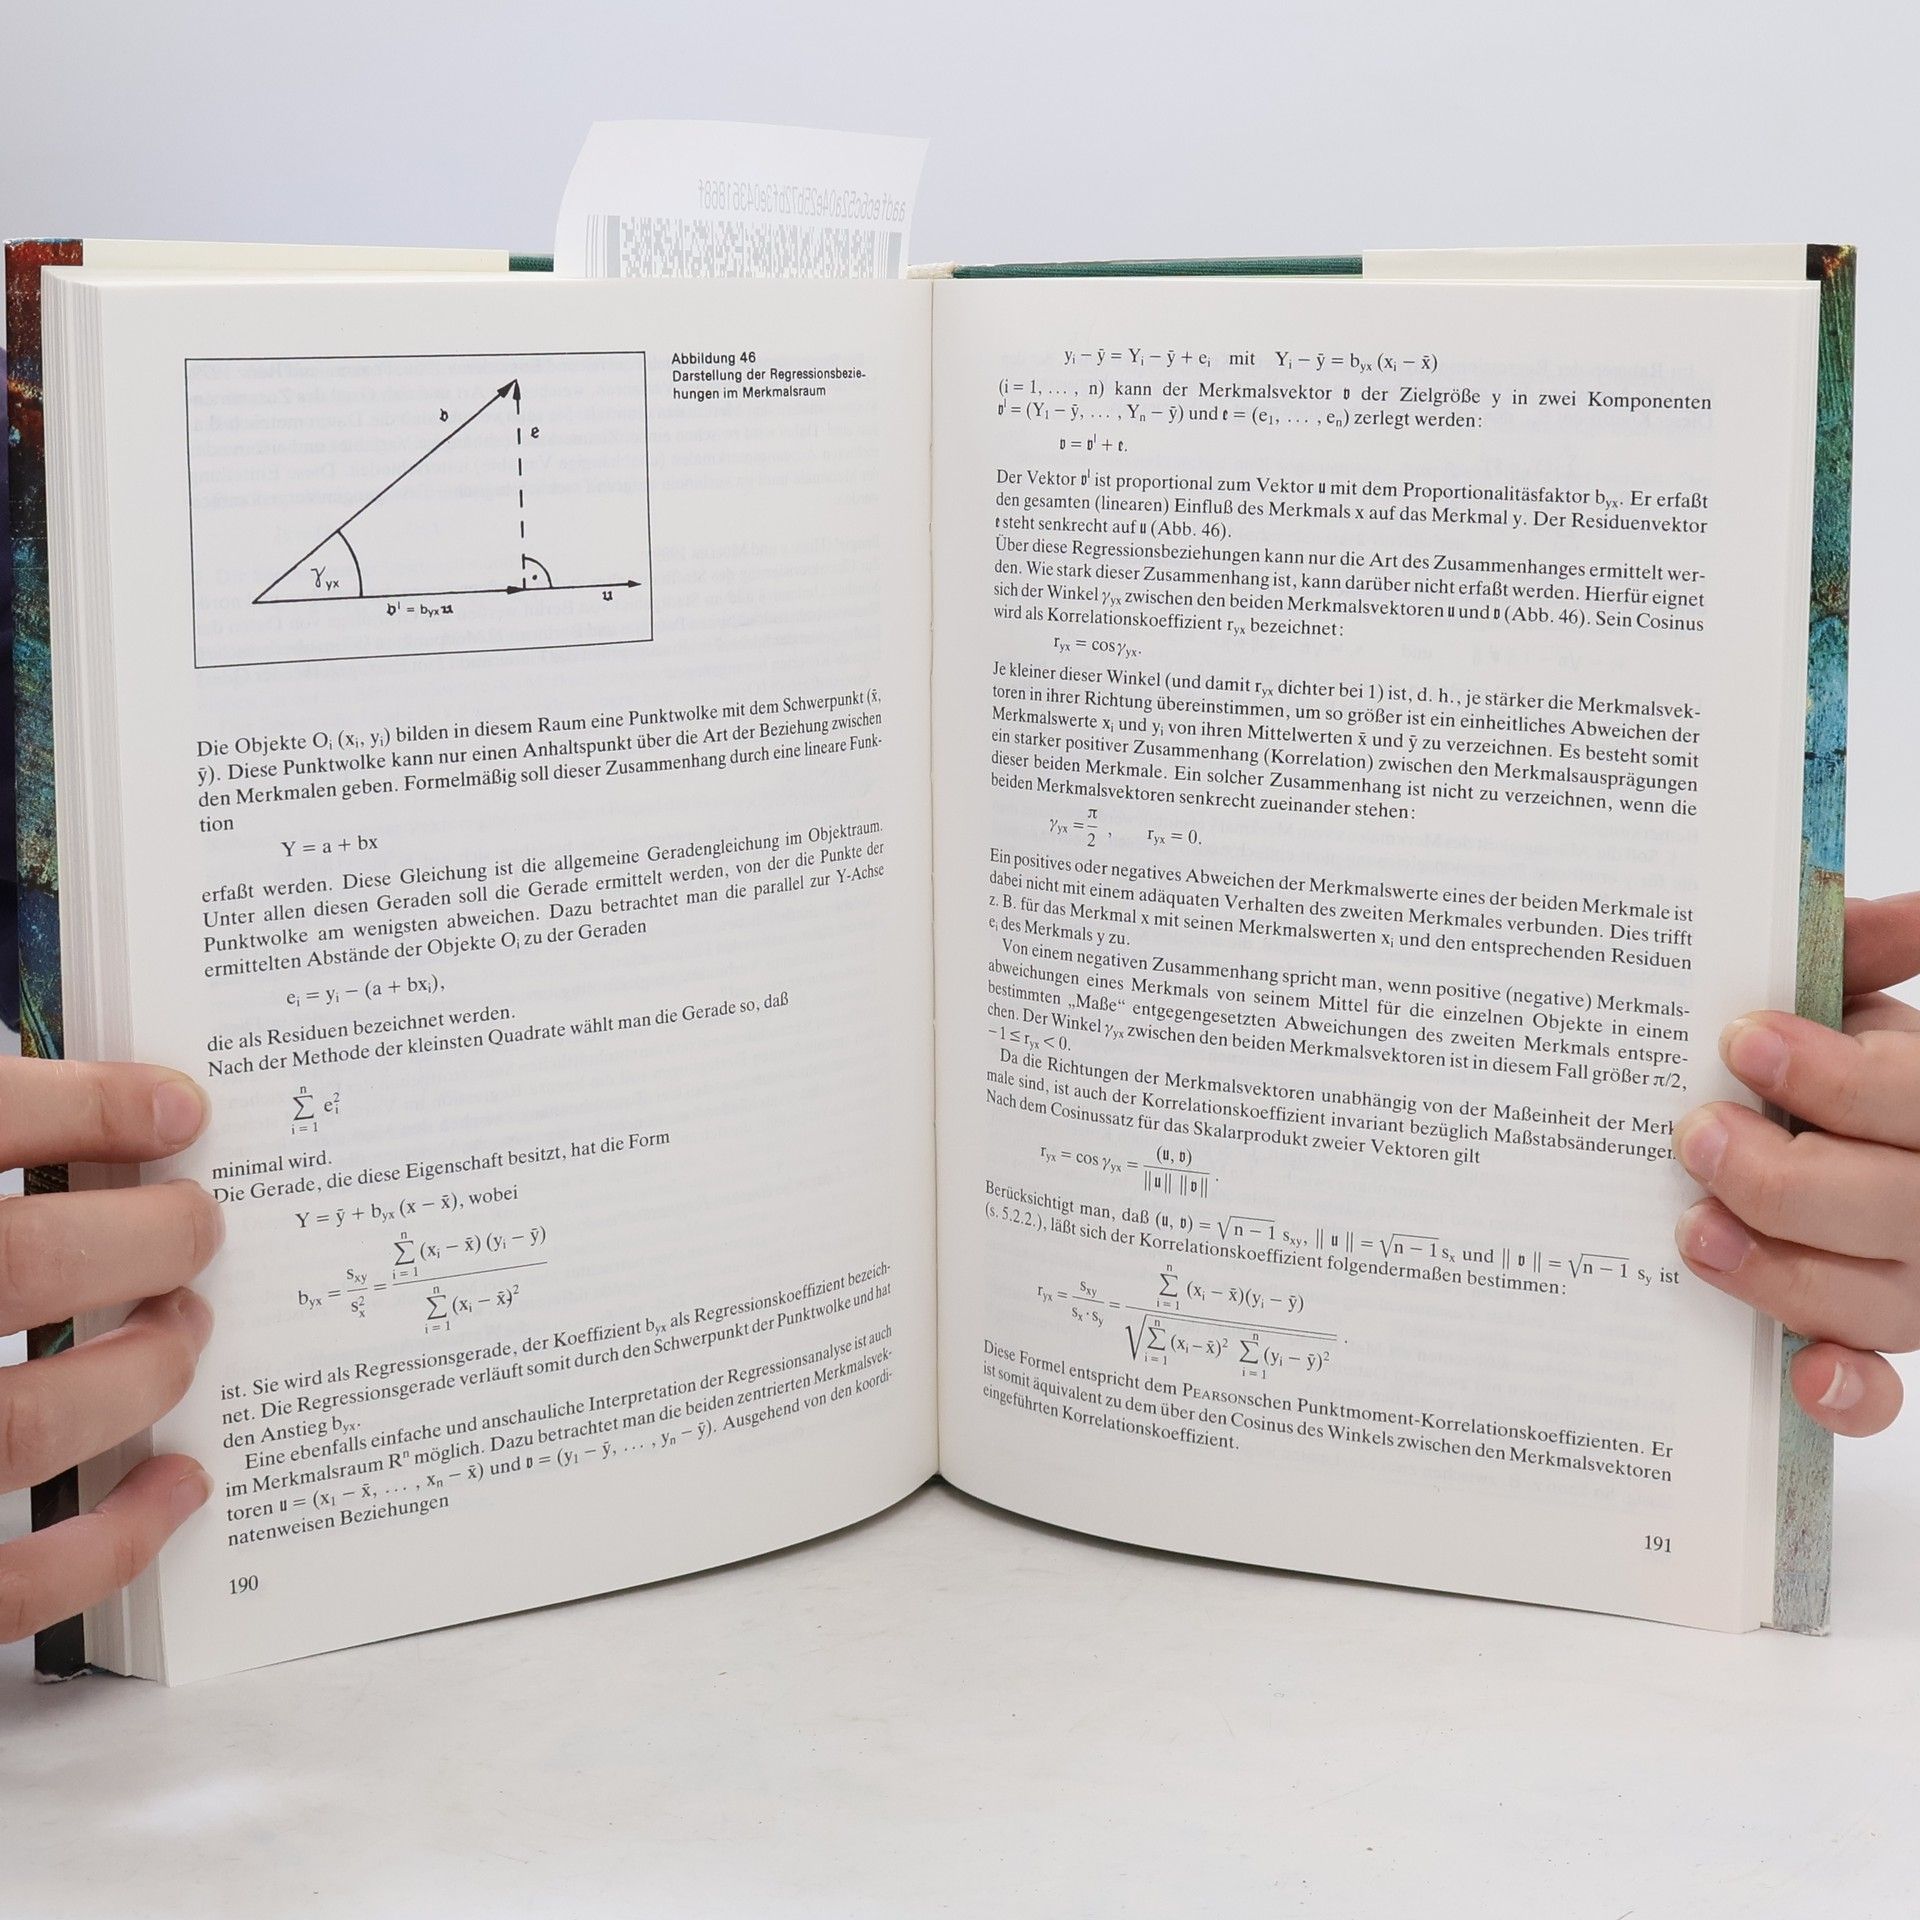 aadfec6c52a04e25b72bf3e04361868f
Abbildung 46
Darstellung der Regressionsbezie-
hungen im Merkmalsraum
𝔳
e
γyx
𝔳ˡ = byx𝔲
𝔲
Die Objekte Oi (xi, yi) bilden in diesem Raum eine Punktwolke mit dem Schwerpunkt (x̄,
ȳ). Diese Punktwolke kann nur einen Anhaltspunkt über die Art der Beziehung zwischen
den Merkmalen geben. Formelmäßig soll dieser Zusammenhang durch eine lineare Funk-
tion
Y = a + bx
erfaßt werden. Diese Gleichung ist die allgemeine Geradengleichung im Objektraum.
Unter allen diesen Geraden soll die Gerade ermittelt werden, von der die Punkte der
Punktwolke am wenigsten abweichen. Dazu betrachtet man die parallel zur Y-Achse
ermittelten Abstände der Objekte Oi zu der Geraden
ei = yi − (a + bxi),
die als Residuen bezeichnet werden.
Nach der Methode der kleinsten Quadrate wählt man die Gerade so, daß
n
∑ ei²
i = 1
minimal wird.
Die Gerade, die diese Eigenschaft besitzt, hat die Form
Y = ȳ + byx (x − x̄), wobei
byx = sxy / sx² = ∑ i = 1 n (xi − x̄) (yi − ȳ) / ∑ i = 1 n (xi − x̄)²
ist. Sie wird als Regressionsgerade, der Koeffizient byx als Regressionskoeffizient bezeich-
net. Die Regressionsgerade verläuft somit durch den Schwerpunkt der Punktwolke und hat
den Anstieg byx.
Eine ebenfalls einfache und anschauliche Interpretation der Regressionsanalyse ist auch
im Merkmalsraum Rⁿ möglich. Dazu betrachtet man die beiden zentrierten Merkmalsvek-
toren 𝔲 = (x1 − x̄, . . . , xn − x̄) und 𝔳 = (y1 − ȳ, . . . , yn − ȳ). Ausgehend von den koordi-
natenweisen Beziehungen
190
yi − ȳ = Yi − ȳ + ei mit Yi − ȳ = byx (xi − x̄)
(i = 1, . . . , n) kann der Merkmalsvektor 𝔳 der Zielgröße y in zwei Komponenten
𝔳ˡ = (Y1 − ȳ, . . . , Yn − ȳ) und 𝔢 = (e1, . . . , en) zerlegt werden:
𝔳 = 𝔳ˡ + 𝔢.
Der Vektor 𝔳ˡ ist proportional zum Vektor 𝔲 mit dem Proportionalitäsfaktor byx. Er erfaßt
den gesamten (linearen) Einfluß des Merkmals x auf das Merkmal y. Der Residuenvektor
𝔢 steht senkrecht auf 𝔲 (Abb. 46).
Über diese Regressionsbeziehungen kann nur die Art des Zusammenhanges ermittelt wer-
den. Wie stark dieser Zusammenhang ist, kann darüber nicht erfaßt werden. Hierfür eignet
sich der Winkel γyx zwischen den beiden Merkmalsvektoren 𝔲 und 𝔳 (Abb. 46). Sein Cosinus
wird als Korrelationskoeffizient ryx bezeichnet:
ryx = cosγyx.
Je kleiner dieser Winkel (und damit ryx dichter bei 1) ist, d. h., je stärker die Merkmalsvek-
toren in ihrer Richtung übereinstimmen, um so größer ist ein einheitliches Abweichen der
Merkmalswerte xi und yi von ihren Mittelwerten x̄ und ȳ zu verzeichnen. Es besteht somit
ein starker positiver Zusammenhang (Korrelation) zwischen den Merkmalsausprägungen
dieser beiden Merkmale. Ein solcher Zusammenhang ist nicht zu verzeichnen, wenn die
beiden Merkmalsvektoren senkrecht zueinander stehen:
γyx = π/2 , ryx = 0.
Ein positives oder negatives Abweichen der Merkmalswerte eines der beiden Merkmale ist
dabei nicht mit einem adäquaten Verhalten des zweiten Merkmales verbunden. Dies trifft
z. B. für das Merkmal x mit seinen Merkmalswerten xi und den entsprechenden Residuen
ei des Merkmals y zu.
Von einem negativen Zusammenhang spricht man, wenn positive (negative) Merkmals-
abweichungen eines Merkmals von seinem Mittel für die einzelnen Objekte in einem
bestimmten „Maße“ entgegengesetzten Abweichungen des zweiten Merkmals entspre-
chen. Der Winkel γyx zwischen den beiden Merkmalsvektoren ist in diesem Fall größer π/2,
−1 ≤ ryx < 0.
Da die Richtungen der Merkmalsvektoren unabhängig von der Maßeinheit der Merk
male sind, ist auch der Korrelationskoeffizient invariant bezüglich Maßstabsänderungen
Nach dem Cosinussatz für das Skalarprodukt zweier Vektoren gilt
ryx = cos γyx = (𝔲, 𝔳) / ||𝔲|| ||𝔳|| .
Berücksichtigt man, daß (𝔲, 𝔳) = √n − 1 sxy, || 𝔲 || = √n − 1 sx und || 𝔳 || = √n − 1 sy ist
(s. 5.2.2.), läßt sich der Korrelationskoeffizient folgendermaßen bestimmen:
ryx = sxy / sx · sy = ∑ i = 1 n (xi − x̄)(yi − ȳ) / √∑ i = 1 n (xi − x̄)² ∑ i = 1 n (yi − ȳ)² .
Diese Formel entspricht dem PEARSONschen Punktmoment-Korrelationskoeffizienten. Er
ist somit äquivalent zu dem über den Cosinus des Winkels zwischen den Merkmalsvektoren
eingeführten Korrelationskoeffizient.
191